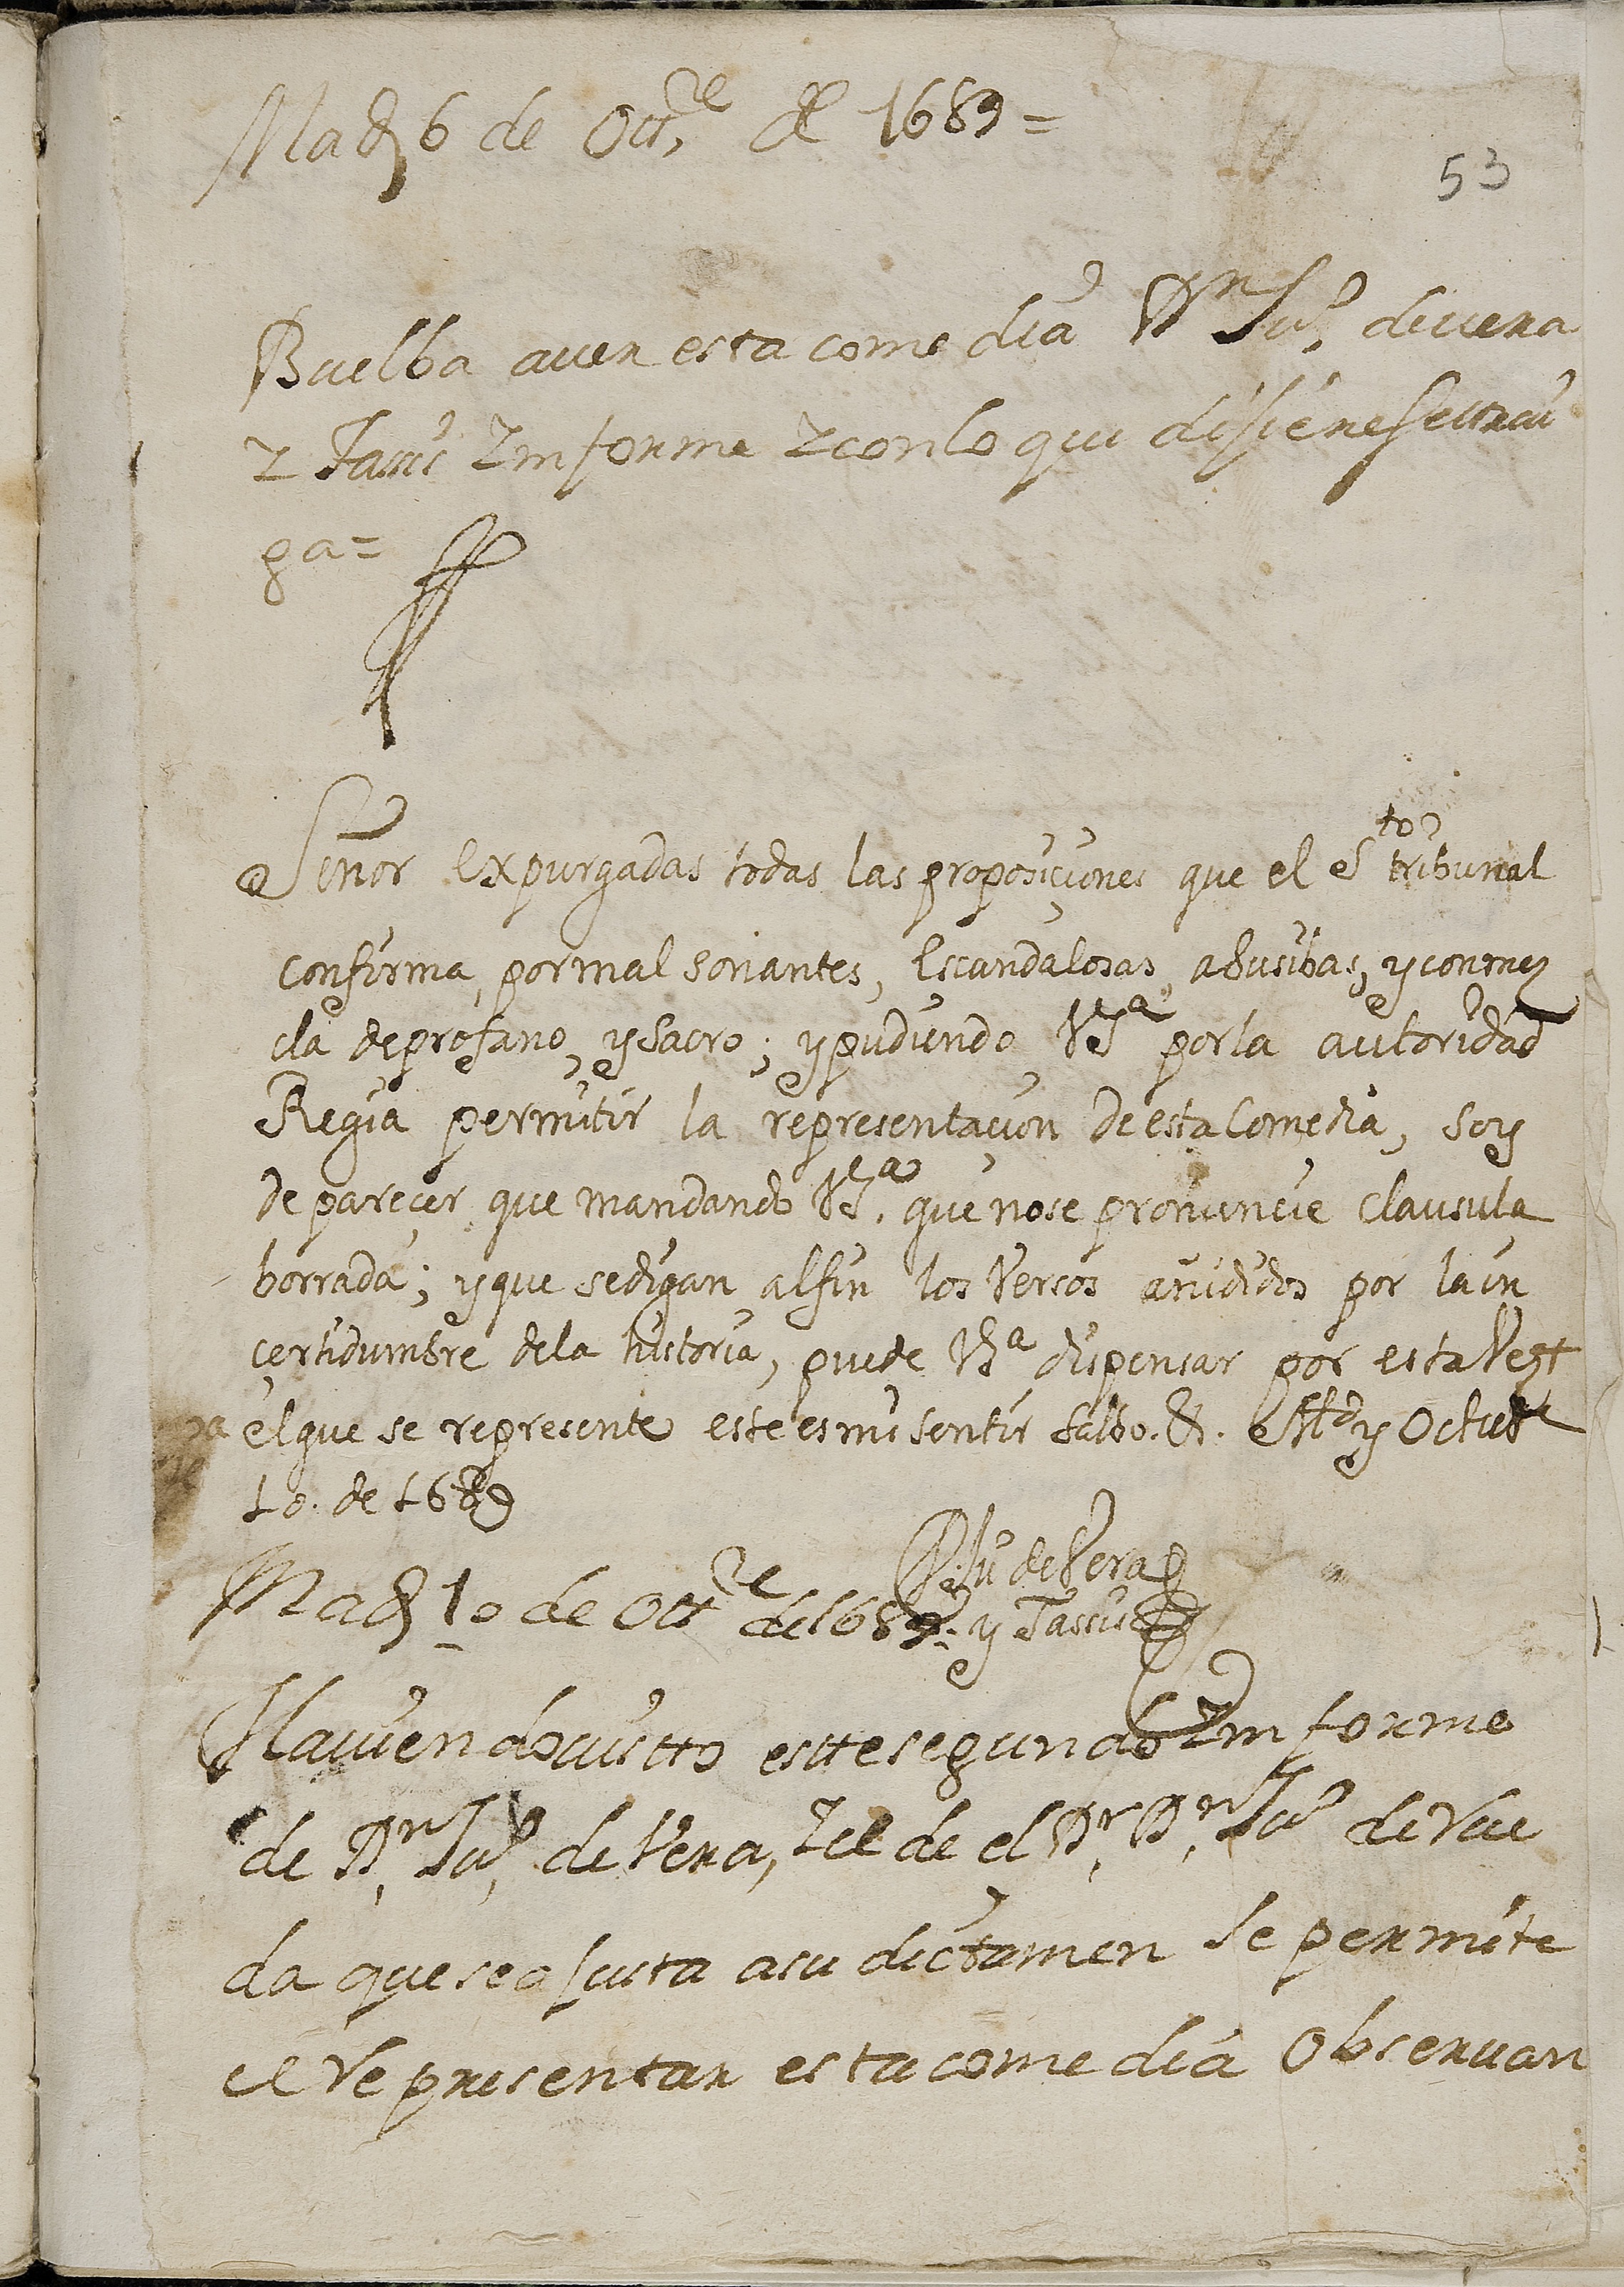 Mad 6 de Octre de 1689=
53
Buelba aver esta comedia Dn Jun de vera
y Tasis Informe y con lo que dijiere se ttrai
ga=
Señor Expurgadas todas las proposiçiones que el Sto tribunal
confirma, por mal sonantes, Escandalosas, abusibas, y con mez
cla de profano, y Sacro; y pudiendo VSa por la autoridad
Regia permitir la representaçion de esta Comedia, soy
de pareçer que mandando VSa. que no se pronunçie clausula
borrada; y que se digan al fin los Versos añididos por la in
çertidumbre de la historia, puede VSa dispensar por esta Vez
el que se represente este es mi sentir salbo. &. Md y Octubre
10. de 1689
Dn Ju de Vera
y Tassis
Mad 10 de Octre de 1689.
Haviendo visto estte segundo Informe
de Dn Jun de Vera, y el de el Dr Dn Jun de Rue
da que se ajusta a su dictamen se permite
el Representar esta comedia Observan